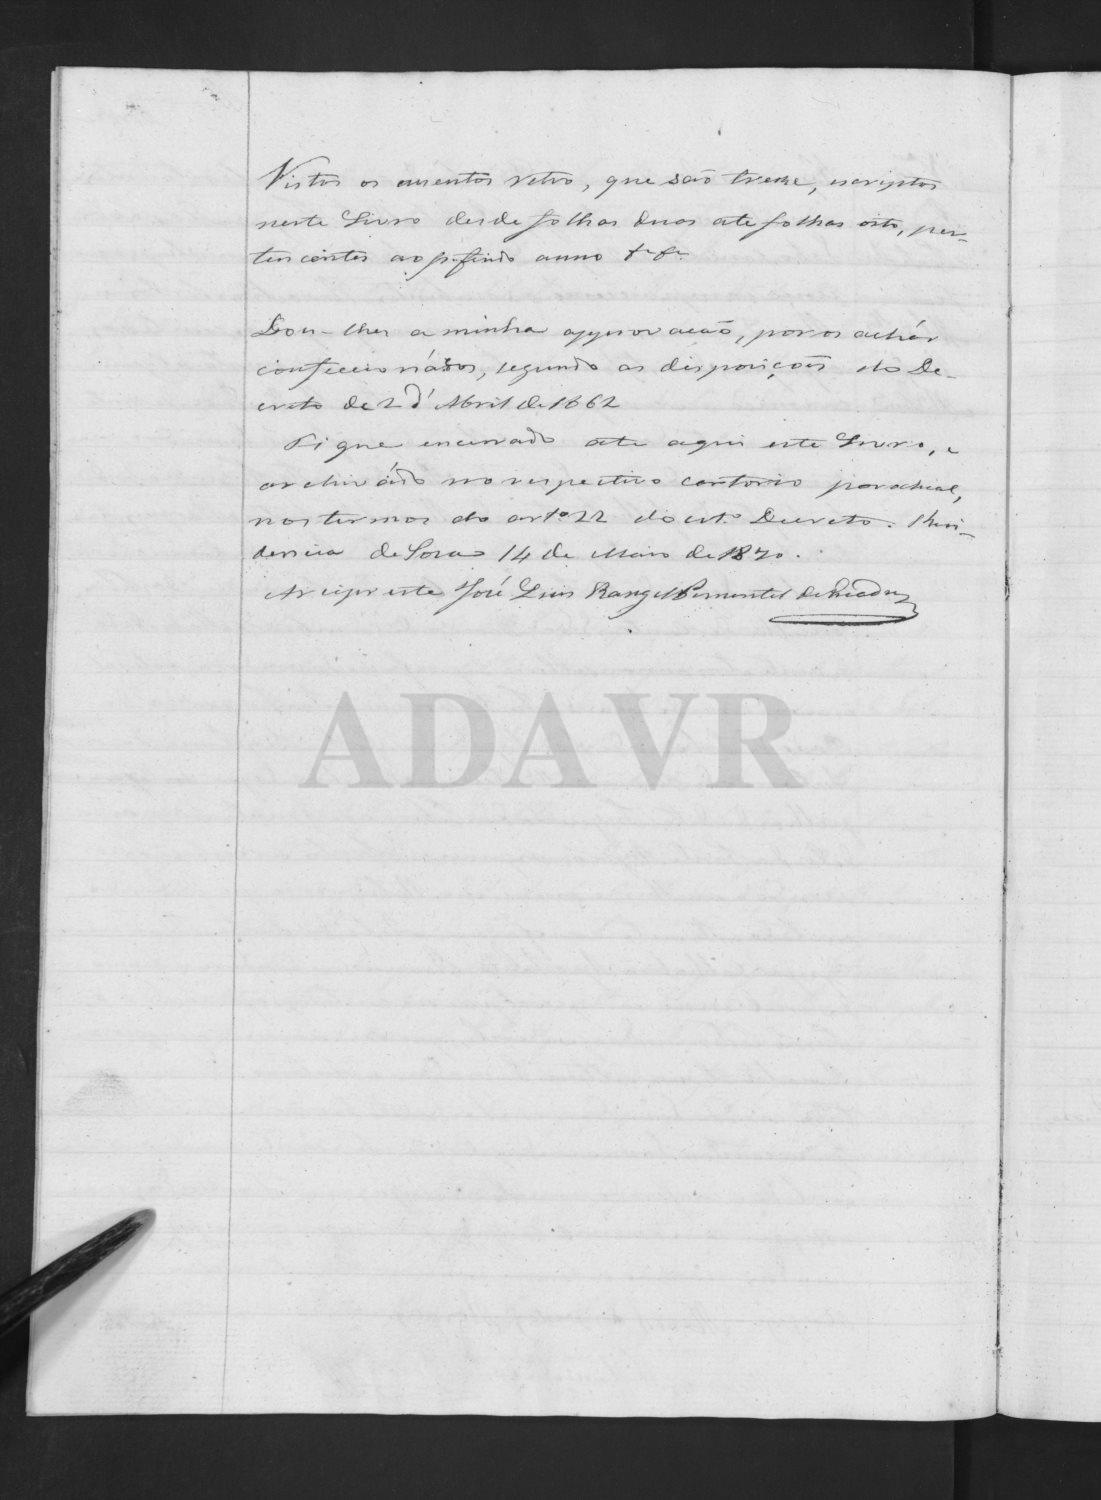 Vistos os assentos retro, que são treze, escriptos
neste Livro desde folhas duas até folhas oito, per-
tencentes ao p. findo anno
Dou-lhes a minha approvação, por os achár
confeccionádos, segundo as disposições do De-
creto de 2 d'Abril de 1862
Fique encerrado até aqui este Livro, e
archivádo no respectivo cartorio parochial,
nos termos do artº 22 do cit.º Decreto. Resi-
dencia de Soza 14 de Maio de 1870.
Arcipreste José Luis Rangel Pimentel de
ADAVR